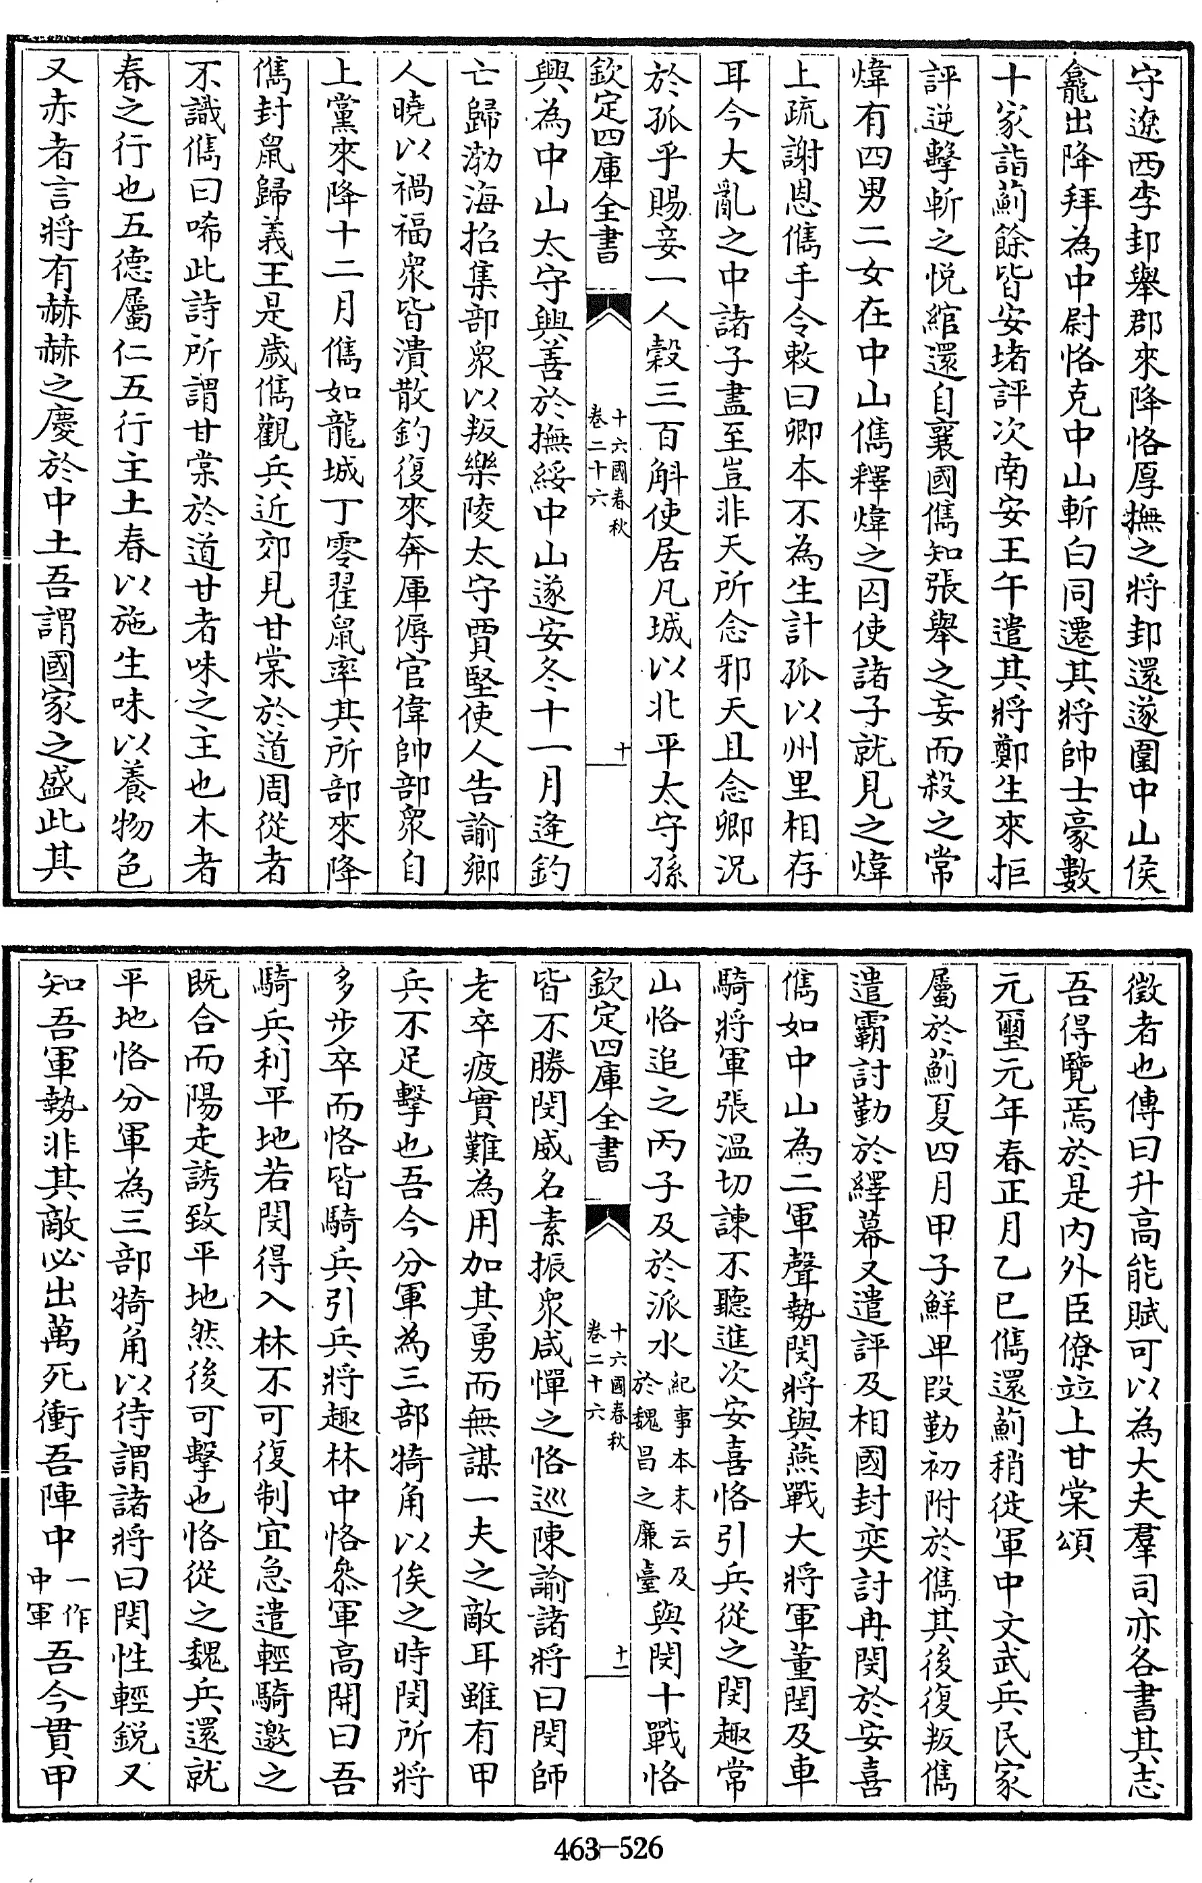 守遼西李邽舉郡來降恪厚撫之將邽還遂圍中山侯
龕出降拜為中尉恪克中山斬白同遷其將帥士豪數
十家詣薊餘皆安堵評次南安王午遣其將鄭生來拒
評逆擊斬之悅綰還自襄國儁知張舉之妄而殺之常
煒有四男二女在中山儁釋煒之囚使諸子就見之煒
上疏謝恩儁手令敕曰卿本不為生計孤以州里相存
耳今大亂之中諸子盡至豈非天所念邪天且念卿況
於孤乎賜妾一人穀三百斛使居凡城以北平太守孫
欽定四庫全書
十六國春秋
卷二十六
十
興為中山太守興善於撫綏中山遂安冬十一月逄釣
亡歸渤海招集部衆以叛樂陵太守賈堅使人告諭鄉
人曉以禍福衆皆潰散釣復來奔厙傉官偉帥部衆自
上黨來降十二月儁如龍城丁零翟鼠率其所部來降
儁封鼠歸義王是歲儁觀兵近郊見甘棠於道周從者
不識儁曰唏此詩所謂甘棠於道甘者味之主也木者
春之行也五德屬仁五行主土春以施生味以養物色
又赤者言將有赫赫之慶於中土吾謂國家之盛此其
徵者也傳曰升高能賦可以為大夫羣司亦各書其志
吾得覽焉於是内外臣僚竝上甘棠頌
元璽元年春正月乙巳儁還薊稍徙軍中文武兵民家
屬於薊夏四月甲子鮮卑段勤初附於儁其後復叛儁
遣霸討勤於繹幕又遣評及相國封奕討冉閔於安喜
儁如中山為二軍聲勢閔將與燕戰大將軍董閏及車
騎將軍張溫切諫不聽進次安喜恪引兵從之閔趣常
山恪追之丙子及於派水紀事本末云及於魏昌之廉臺與閔十戰恪
欽定四庫全書
十六國春秋
卷二十六
十一
皆不勝閔威名素振衆咸憚之恪巡陳諭諸將曰閔師
老卒疲實難為用加其勇而無謀一夫之敵耳雖有甲
兵不足擊也吾今分軍為三部犄角以俟之時閔所將
多步卒而恪皆騎兵引兵將趣林中恪叅軍高開曰吾
騎兵利平地若閔得入林不可復制宜急遣輕騎邀之
既合而陽走誘致平地然後可擊也恪從之魏兵還就
平地恪分軍為三部犄角以待謂諸將曰閔性輕鋭又
知吾軍勢非其敵必出萬死衝吾陣中一作中軍吾今貫甲
463-526